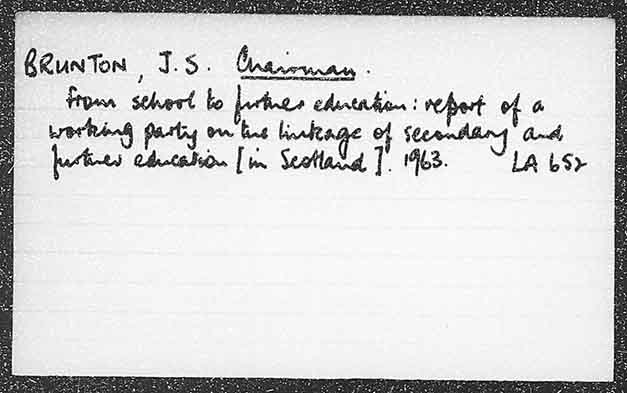 BRUNTON, J.S. Chairman.
From school to further education: report of a
working party on the linkage of secondary and
further education [in Scotland]. 1963. LA 652